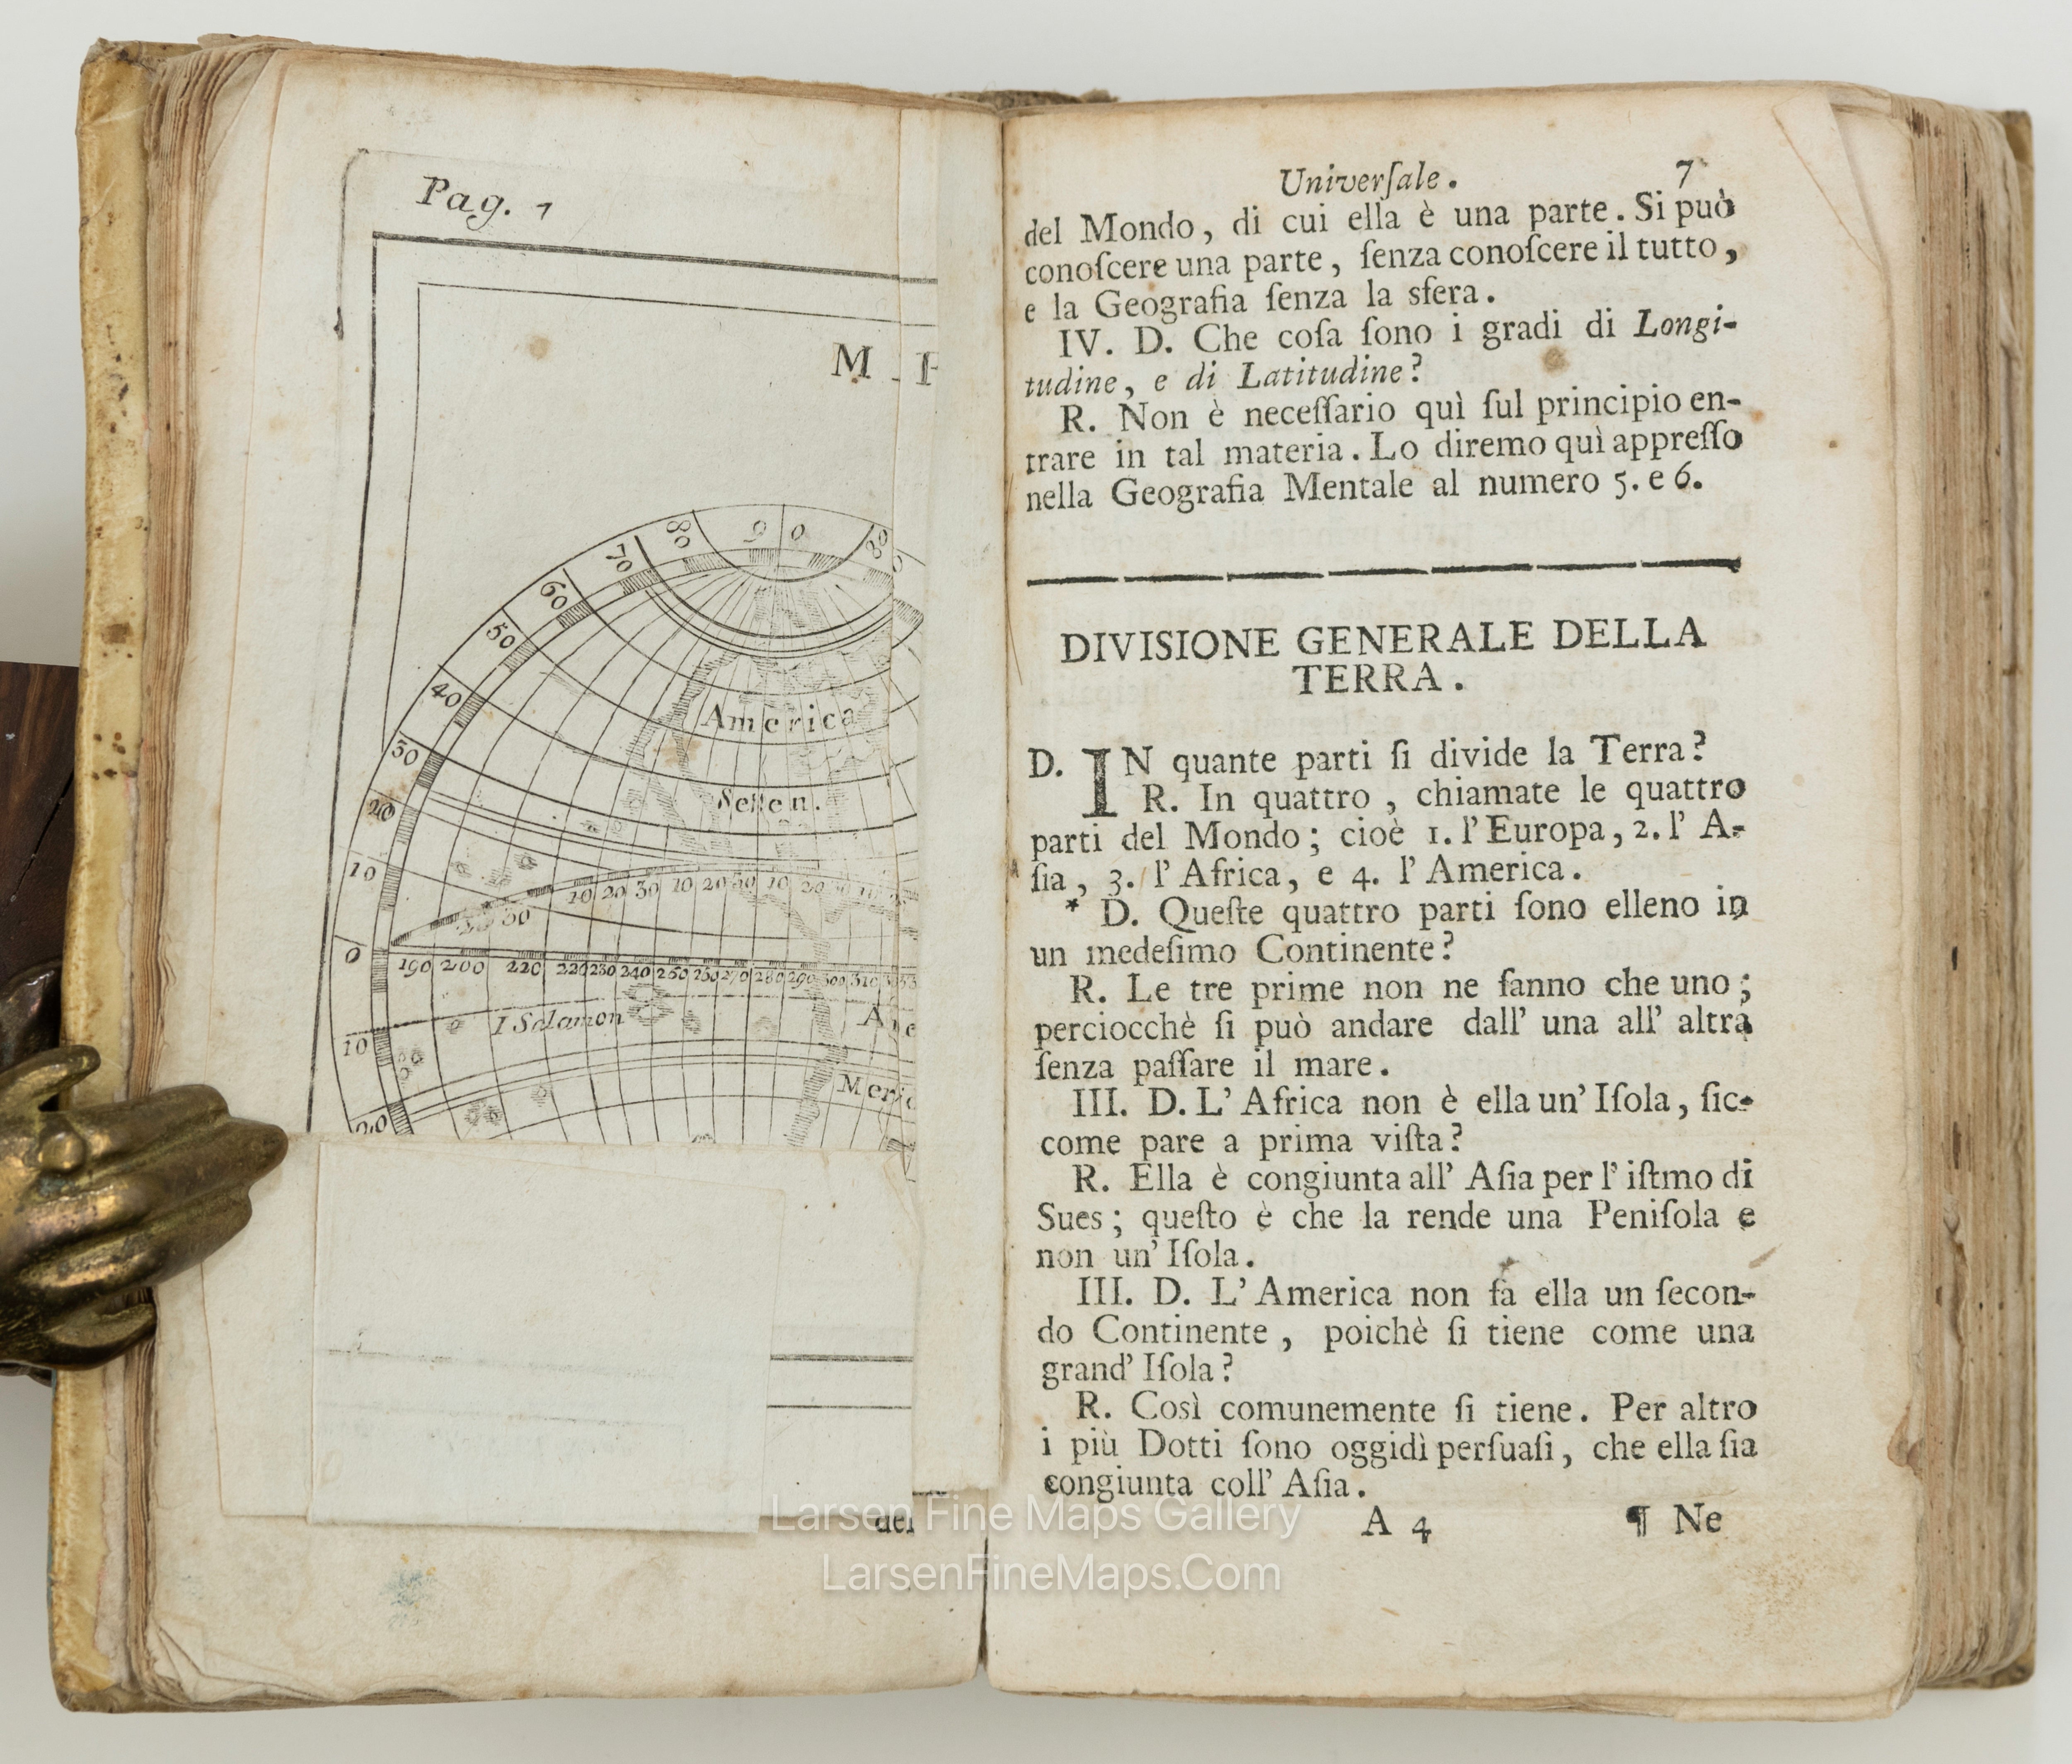 Pag. 7
M
80 9 0 80
70
60
50
40
30
20
10
0
10
20
America
Setten.
10 20 30 10 20 30 10 20
190 200 220 220 230 240 260 250 270 280 290 300 310
I Salamon
Universale. 7
del Mondo, di cui ella è una parte. Si può
conoſcere una parte, ſenza conoſcere il tutto,
e la Geografia ſenza la sfera.
IV. D. Che coſa ſono i gradi di Longi-
tudine, e di Latitudine?
R. Non è neceſſario quì ſul principio en-
trare in tal materia. Lo diremo quì appreſſo
nella Geografia Mentale al numero 5. e 6.
DIVISIONE GENERALE DELLA
TERRA.
D. IN quante parti ſi divide la Terra?
R. In quattro, chiamate le quattro
parti del Mondo; cioè 1. l'Europa, 2. l' A-
ſia, 3. l' Africa, e 4. l' America.
* D. Queſte quattro parti ſono elleno in
un medeſimo Continente?
R. Le tre prime non ne fanno che uno;
perciocchè ſi può andare dall' una all' altra
ſenza paſſare il mare.
III. D. L' Africa non è ella un' Iſola, ſic-
come pare a prima viſta?
R. Ella è congiunta all' Aſia per l' iſtmo di
Sues; queſto è che la rende una Peniſola e
non un' Iſola.
III. D. L' America non fa ella un ſecon-
do Continente, poichè ſi tiene come una
grand' Iſola?
R. Così comunemente ſi tiene. Per altro
i più Dotti ſono oggidì perſuaſi, che ella ſia
congiunta coll' Aſia.
A 4 ¶ Ne
del
Larsen Fine Maps Gallery
LarsenFineMaps.Com